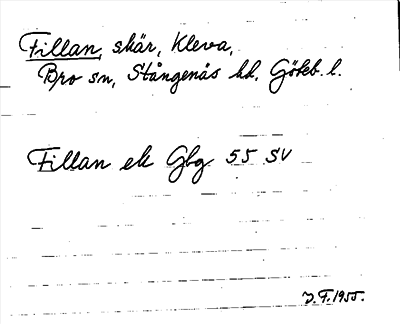 Fillan, skär, Kleva,
Bro sn, Stångenäs hd, Göteb. l.
Fillan ek Gbg 55 SV
J.F. 1955.